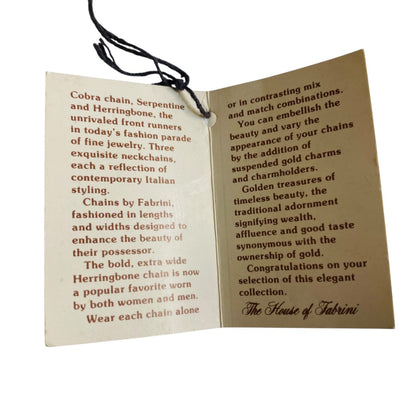 Cobra chain, Serpentine
and Herringbone, the
unrivaled front runners
in today's fashion parade
of fine jewelry. Three
exquisite neckchains,
each a reflection of
contemporary Italian
styling.
Chains by Fabrini,
fashioned in lengths
and widths designed to
enhance the beauty of
their possessor.
The bold, extra wide
Herringbone chain is now
a popular favorite worn
by both women and men.
Wear each chain alone
or in contrasting mix
and match combinations.
You can embellish the
beauty and vary the
appearance of your chains
by the addition of
suspended gold charms
and charmholders.
Golden treasures of
timeless beauty, the
traditional adornment
signifying wealth,
affluence and good taste
synonymous with the
ownership of gold.
Congratulations on your
selection of this elegant
collection.
The House of Fabrini